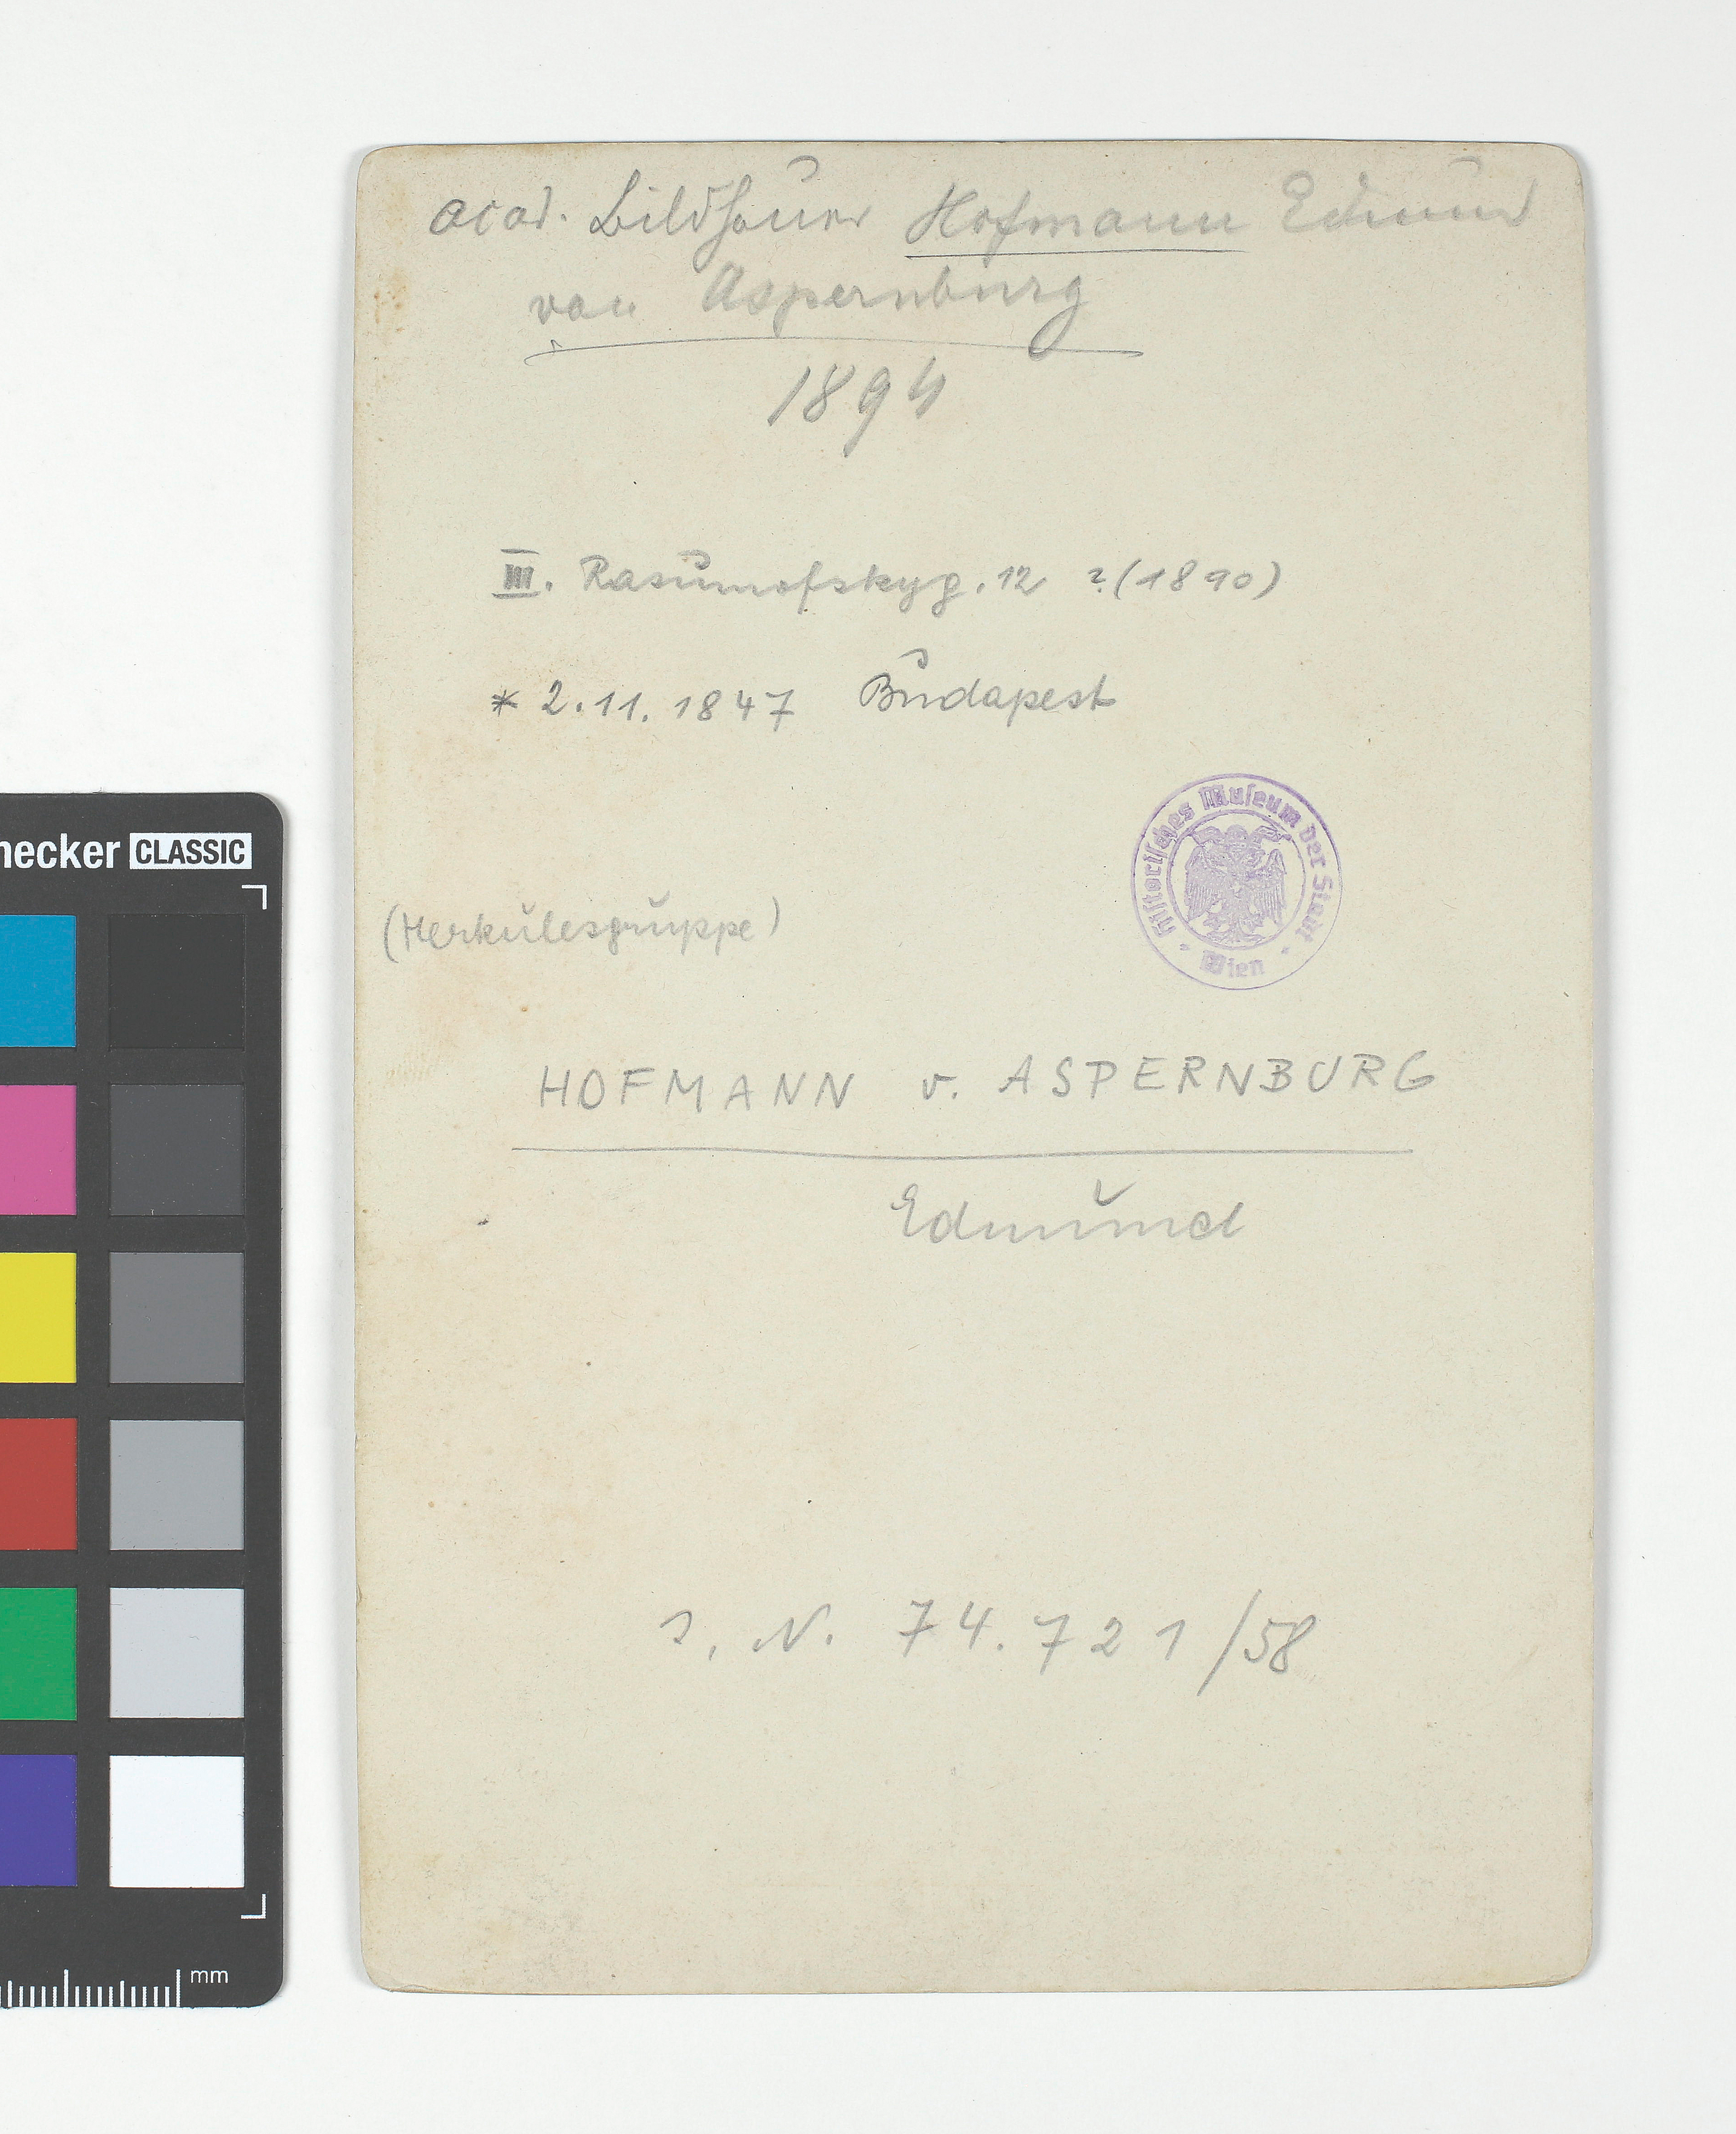 acad. Bildhauer Hofmann Edmund
von Aspernburg
1894
III. Rasumofskyg. 12 ? (1890)
* 2.11. 1847 Budapest
Historisches Museum der Stadt
· Wien ·
(Herkulesgruppe)
HOFMANN v. ASPERNBURG
Edmund
J. N. 74.721/58
necker CLASSIC
mm